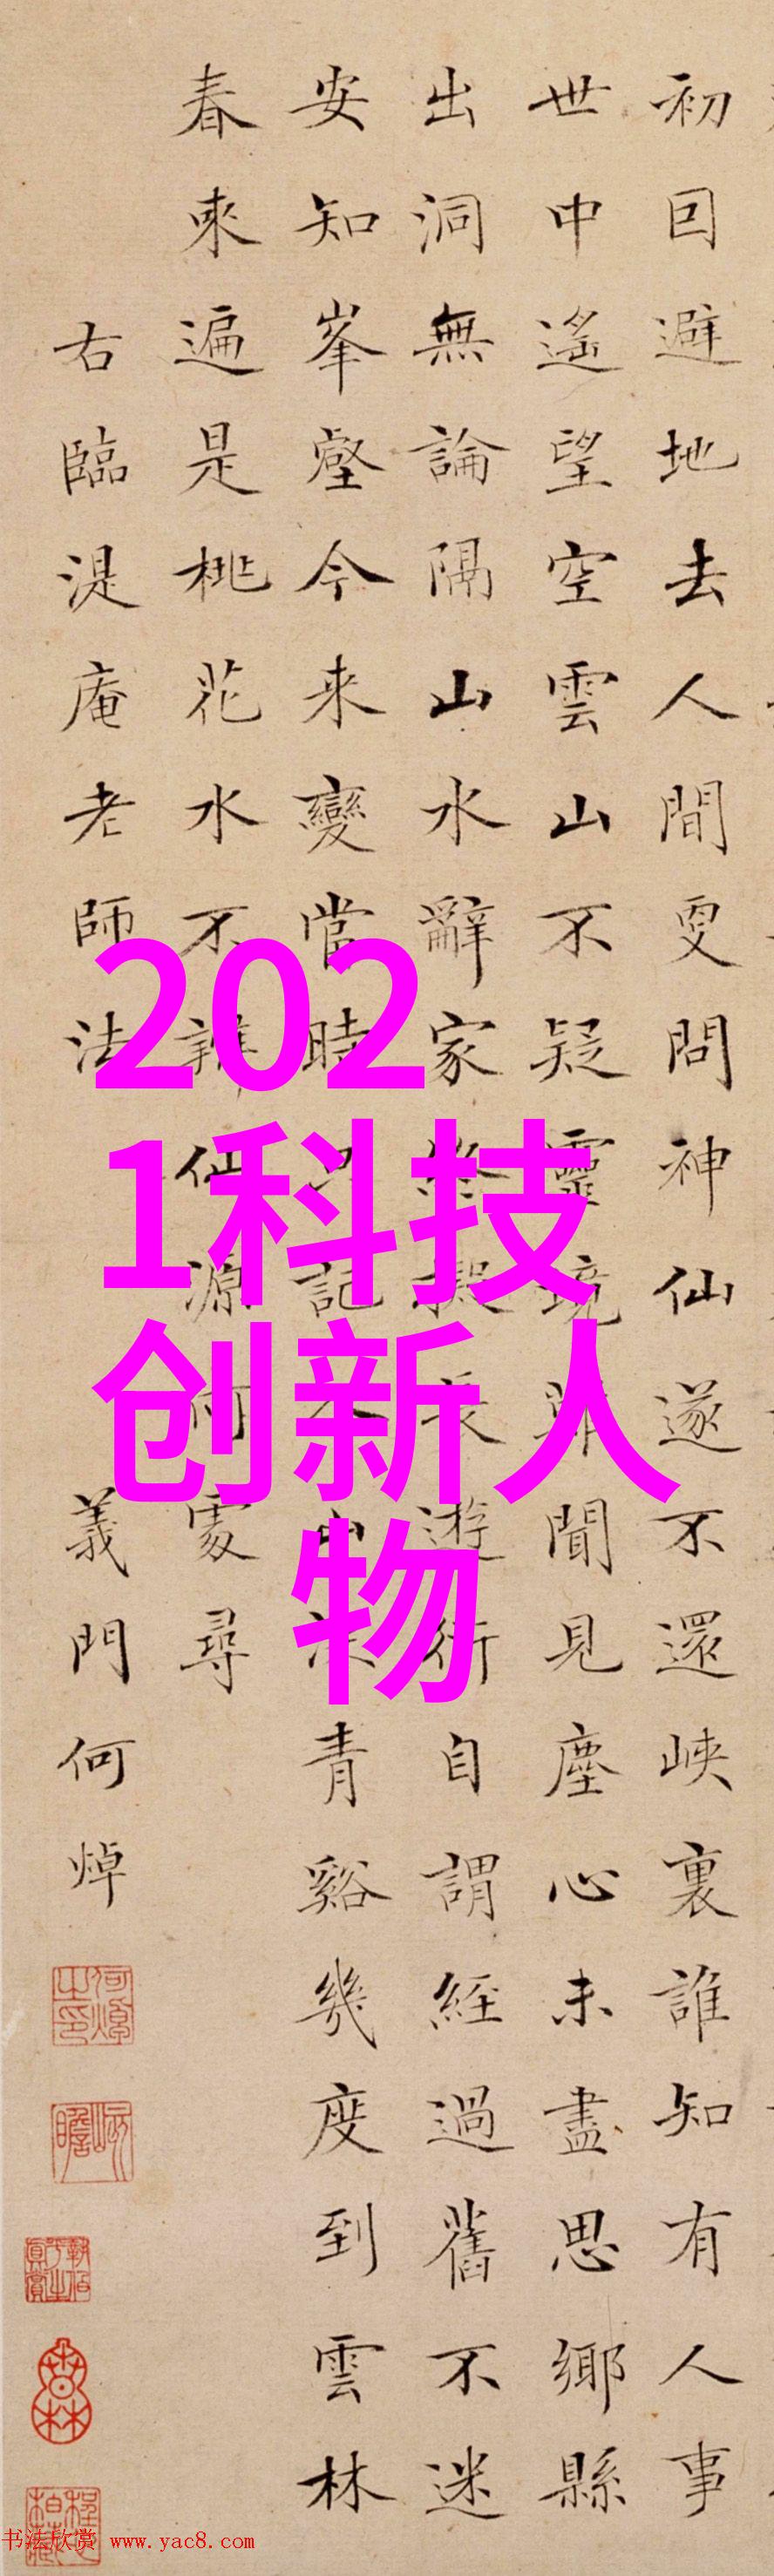 初囙避地去人間更問神仙遂不還峽裏誰知有人事
世中遙望空雲山不疑靈境難聞見塵心未盡思鄉縣
出洞無論隔山水辭家終擬長遊衍自謂經過舊不迷
安知峯壑今来變當時只記入山深青谿幾度到雲林
春來遍是桃花水不辨仙源何處尋
右臨湜庵老師法 義門何焯
何焯之印
屺瞻
202
1科技
创新人
物
书法欣赏 www.yac8.com